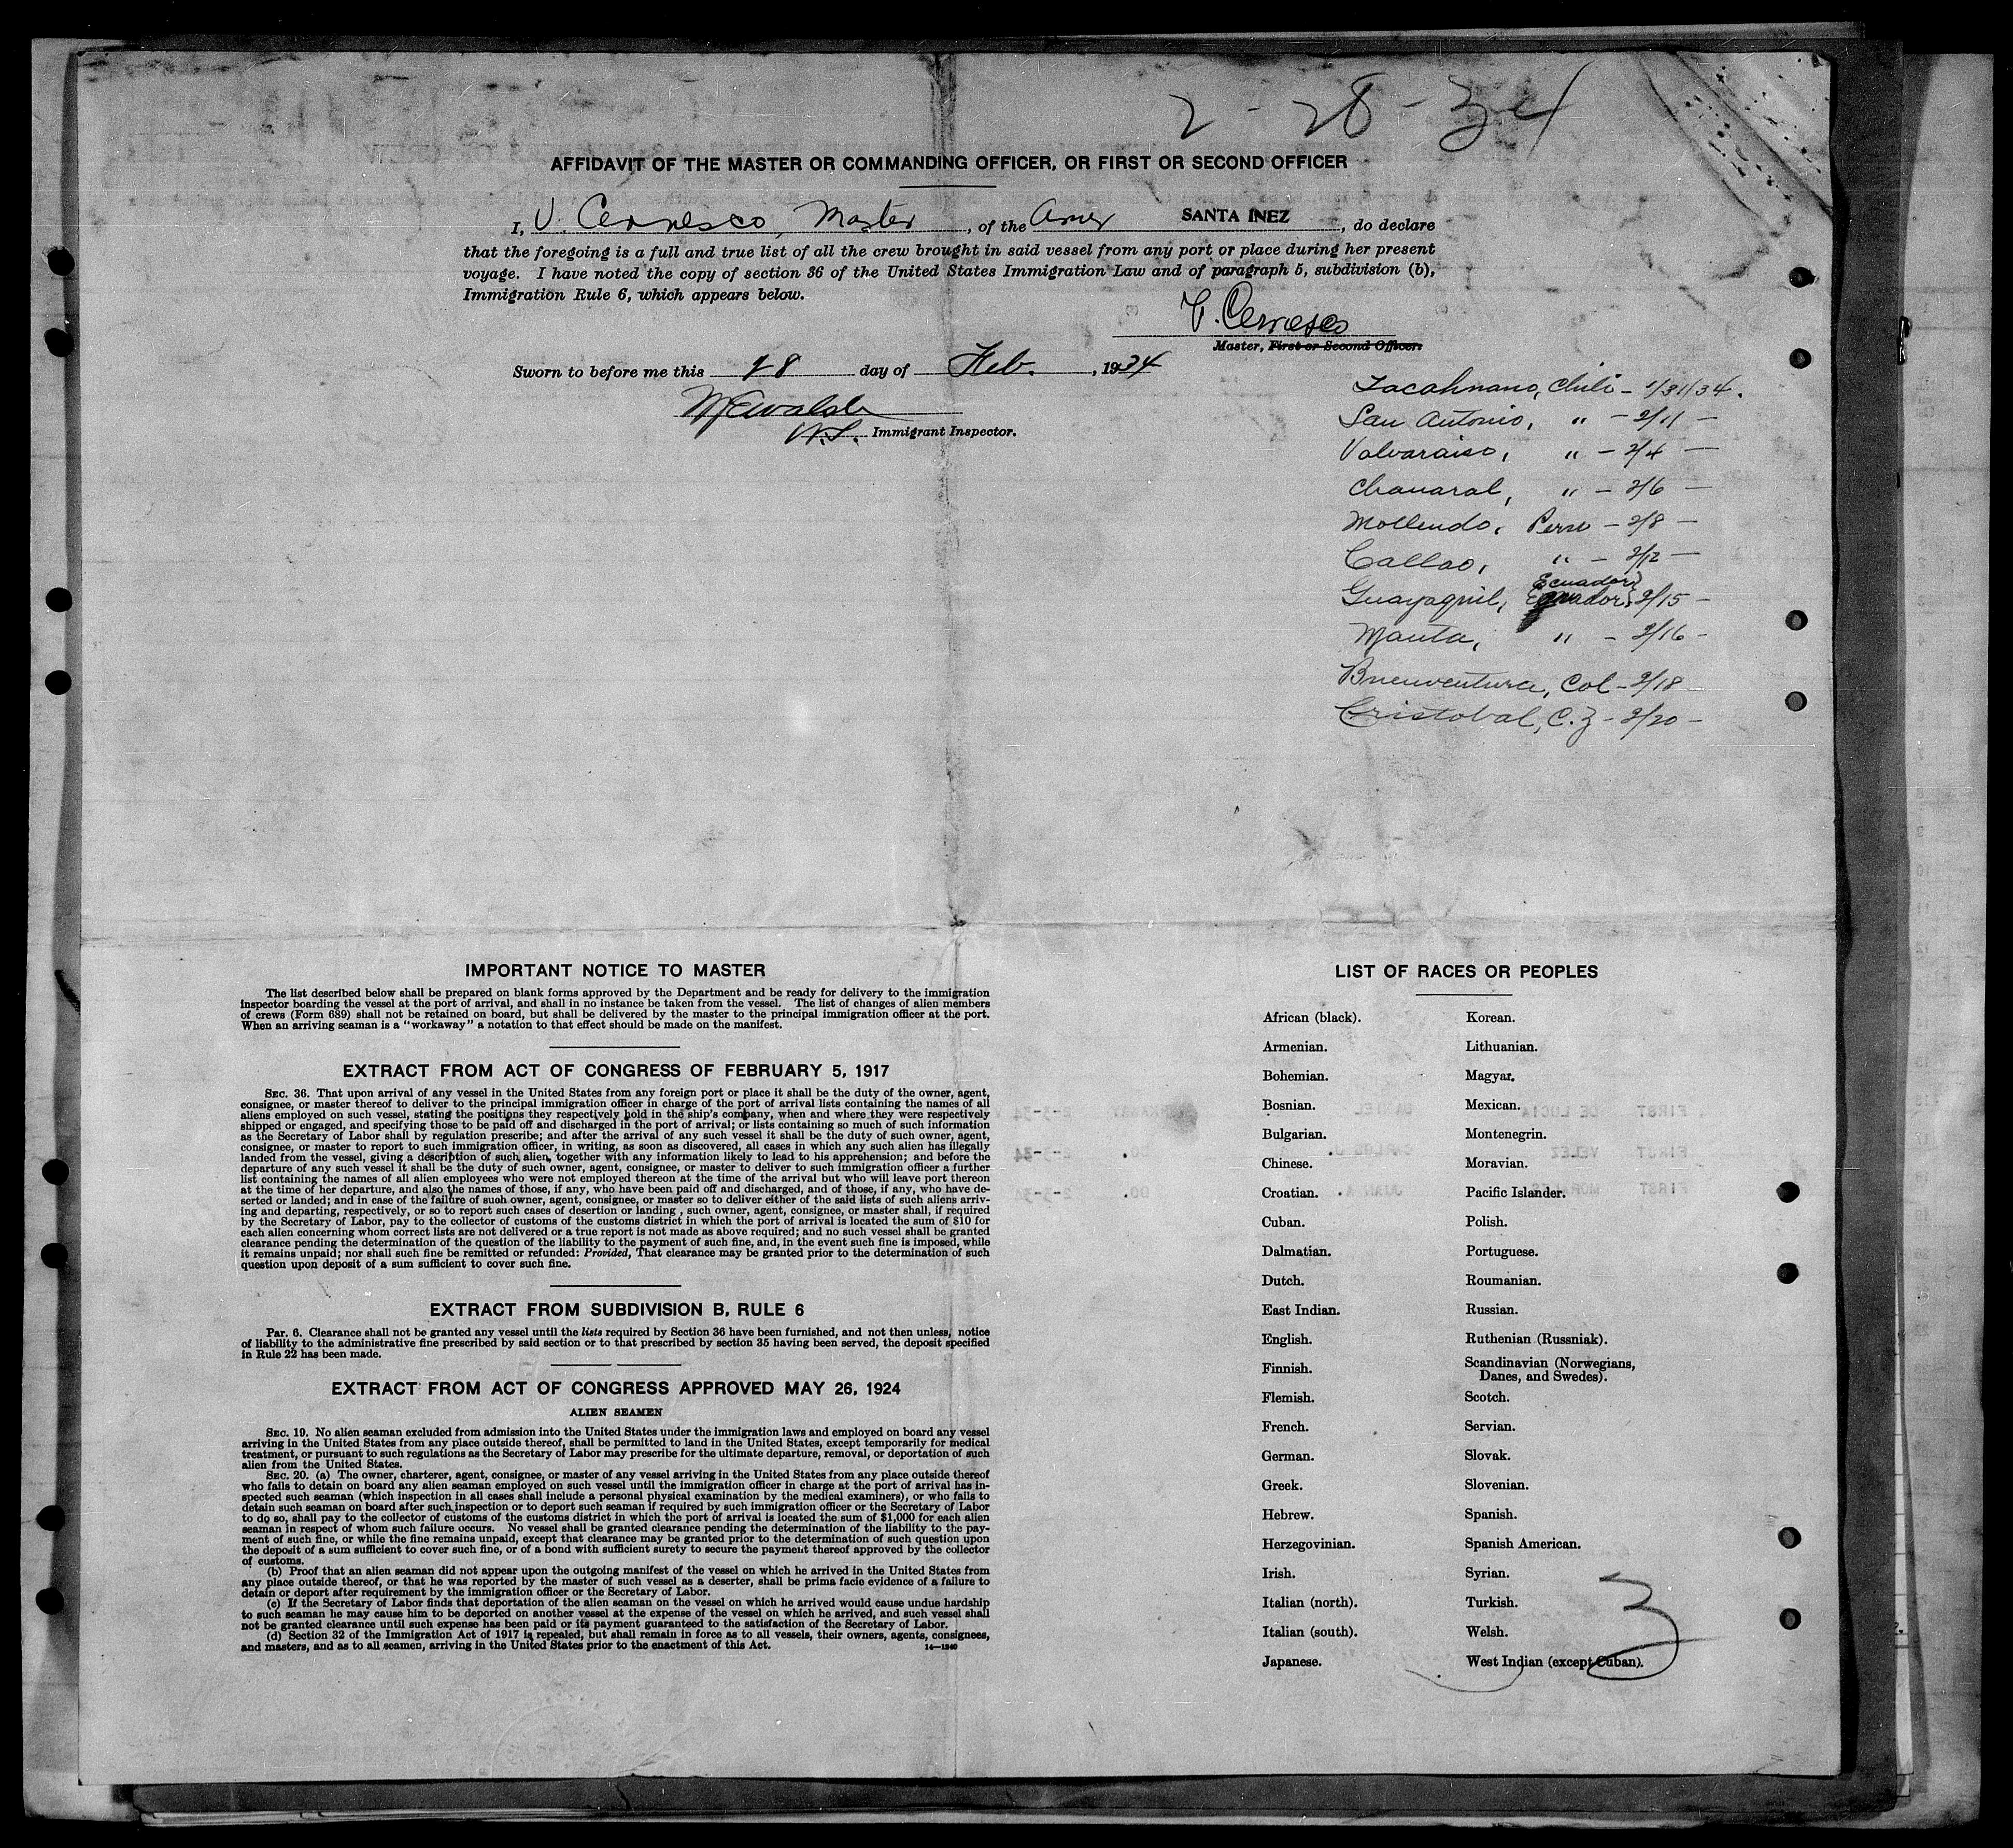 2-28-34
AFFIDAVIT OF THE MASTER OR COMMANDING OFFICER, OR FIRST OR SECOND OFFICER
I, V. Cervesco, Master, of the Amer SANTA INEZ, do declare
that the foregoing is a full and true list of all the crew brought in said vessel from any port or place during her present
voyage. I have noted the copy of section 36 of the United States Immigration Law and of paragraph 5, subdivision (b),
Immigration Rule 6, which appears below.
Master, First or Second Officer.
Sworn to before me this 28 day of Feb., 1934
Immigrant Inspector.
Tacahnano, Chili - 1/31/34.
San Antonio, " - 2/11 -
Valvaraiso, " - 2/4 -
Chanaral, " - 2/6 -
Mollendo, Peru - 2/8 -
Callao, " - 2/12 -
Guayaquil, Ecuador 2/15 -
Manta, " - 2/16 -
Buenventura, Col - 2/18 -
Cristobal, C.Z - 2/20 -
IMPORTANT NOTICE TO MASTER
The list described below shall be prepared on blank forms approved by the Department and be ready for delivery to the immigration
inspector boarding the vessel at the port of arrival, and shall in no instance be taken from the vessel. The list of changes of alien members
of crews (Form 689) shall not be retained on board, but shall be delivered by the master to the principal immigration officer at the port.
When an arriving seaman is a "workaway" a notation to that effect should be made on the manifest.
EXTRACT FROM ACT OF CONGRESS OF FEBRUARY 5, 1917
SEC. 36. That upon arrival of any vessel in the United States from any foreign port or place it shall be the duty of the owner, agent,
consignee, or master thereof to deliver to the principal immigration officer in charge of the port of arrival lists containing the names of all
aliens employed on such vessel, stating the positions they respectively hold in the ship's company, when and where they were respectively
shipped or engaged, and specifying those to be paid off and discharged in the port of arrival; or lists containing so much of such information
as the Secretary of Labor shall by regulation prescribe; and after the arrival of any such vessel it shall be the duty of such owner, agent,
consignee, or master to report to such immigration officer, in writing, as soon as discovered, all cases in which any such alien has illegally
landed from the vessel, giving a description of such alien, together with any information likely to lead to his apprehension; and before the
departure of any such vessel it shall be the duty of such owner, agent, consignee, or master to deliver to such immigration officer a further
list containing the names of all alien employees who were not employed thereon at the time of the arrival but who will leave port thereon
at the time of her departure, and also the names of those, if any, who have been paid off and discharged, and of those, if any, who have de-
serted or landed; and in case of the failure of such owner, agent, consignee, or master so to deliver either of the said lists of such aliens arriv-
ing and departing, respectively, or so to report such cases of desertion or landing, such owner, agent, consignee, or master shall, if required
by the Secretary of Labor, pay to the collector of customs of the customs district in which the port of arrival is located the sum of $10 for
each alien concerning whom correct lists are not delivered or a true report is not made as above required; and no such vessel shall be granted
clearance pending the determination of the question of the liability to the payment of such fine, and, in the event such fine is imposed, while
it remains unpaid; nor shall such fine be remitted or refunded: Provided, That clearance may be granted prior to the determination of such
question upon deposit of a sum sufficient to cover such fine.
EXTRACT FROM SUBDIVISION B, RULE 6
Par. 6. Clearance shall not be granted any vessel until the lists required by Section 36 have been furnished, and not then unless, notice
of liability to the administrative fine prescribed by said section or to that prescribed by section 35 having been served, the deposit specified
in Rule 22 has been made.
EXTRACT FROM ACT OF CONGRESS APPROVED MAY 26, 1924
ALIEN SEAMEN
SEC. 19. No alien seaman excluded from admission into the United States under the immigration laws and employed on board any vessel
arriving in the United States from any place outside thereof, shall be permitted to land in the United States, except temporarily for medical
treatment, or pursuant to such regulations as the Secretary of Labor may prescribe for the ultimate departure, removal, or deportation of such
alien from the United States.
SEC. 20. (a) The owner, charterer, agent, consignee, or master of any vessel arriving in the United States from any place outside thereof
who fails to detain on board any alien seaman employed on such vessel until the immigration officer in charge at the port of arrival has in-
spected such seaman (which inspection in all cases shall include a personal physical examination by the medical examiners), or who fails to
detain such seaman on board after such inspection or to deport such seaman if required by such immigration officer or the Secretary of Labor
to do so, shall pay to the collector of customs of the customs district in which the port of arrival is located the sum of $1,000 for each alien
seaman in respect of whom such failure occurs. No vessel shall be granted clearance pending the determination of the liability to the pay-
ment of such fine, or while the fine remains unpaid, except that clearance may be granted prior to the determination of such question upon
the deposit of a sum sufficient to cover such fine, or of a bond with sufficient surety to secure the payment thereof approved by the collector
of customs.
(b) Proof that an alien seaman did not appear upon the outgoing manifest of the vessel on which he arrived in the United States from
any place outside thereof, or that he was reported by the master of such vessel as a deserter, shall be prima facie evidence of a failure to
detain or deport after requirement by the immigration officer or the Secretary of Labor.
(c) If the Secretary of Labor finds that deportation of the alien seaman on the vessel on which he arrived would cause undue hardship
to such seaman he may cause him to be deported on another vessel at the expense of the vessel on which he arrived, and such vessel shall
not be granted clearance until such expense has been paid or its payment guaranteed to the satisfaction of the Secretary of Labor.
(d) Section 32 of the Immigration Act of 1917 is repealed, but shall remain in force as to all vessels, their owners, agents, consignees,
and masters, and as to all seamen, arriving in the United States prior to the enactment of this Act.
14-1240
LIST OF RACES OR PEOPLES
African (black). Korean.
Armenian. Lithuanian.
Bohemian. Magyar.
Bosnian. Mexican.
Bulgarian. Montenegrin.
Chinese. Moravian.
Croatian. Pacific Islander.
Cuban. Polish.
Dalmatian. Portuguese.
Dutch. Roumanian.
East Indian. Russian.
English. Ruthenian (Russniak).
Finnish. Scandinavian (Norwegians,
Danes, and Swedes).
Flemish. Scotch.
French. Servian.
German. Slovak.
Greek. Slovenian.
Hebrew. Spanish.
Herzegovinian. Spanish American.
Irish. Syrian.
Italian (north). Turkish.
Italian (south). Welsh.
Japanese. West Indian (except Cuban).
3